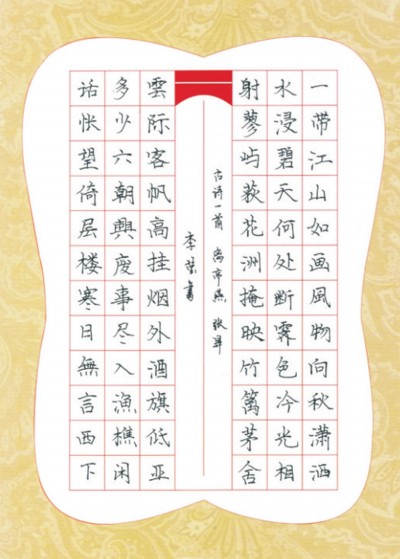 一带江山如画風物向秋潇洒
水浸碧天何处断霁色冷光相
射蓼屿荻花洲掩映竹篱茅舍
古诗一首 离亭燕 张昇
李書
雲际客帆高挂烟外酒旗低亚
多少六朝興废事尽入漁樵闲
话怅望倚层楼寒日無言西下